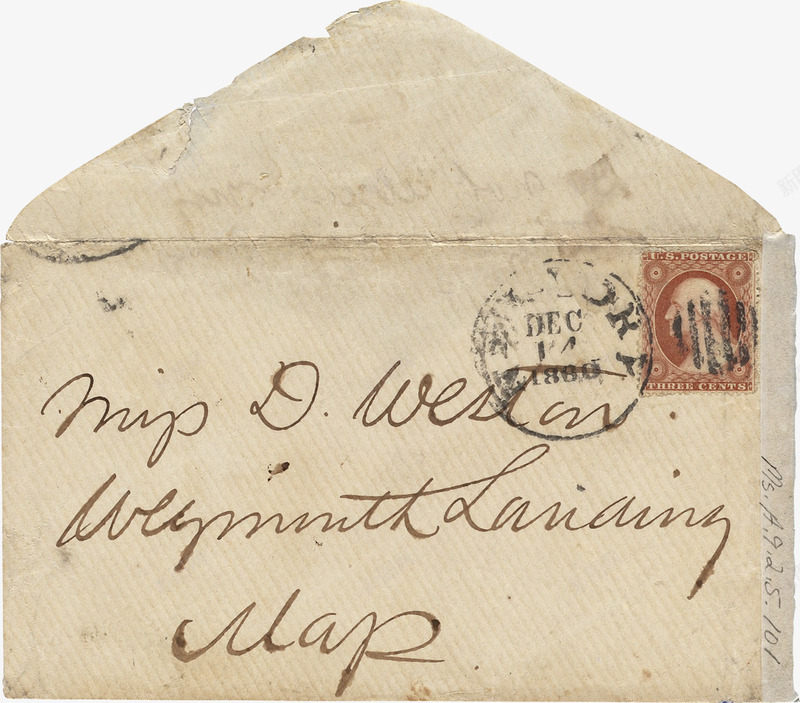 U.S. POSTAGE
THREE CENTS
NEW YORK
DEC
14
1860
Miss D. Weston.
Weymouth Landing
Mass.
Ms. A.9.2.5.101